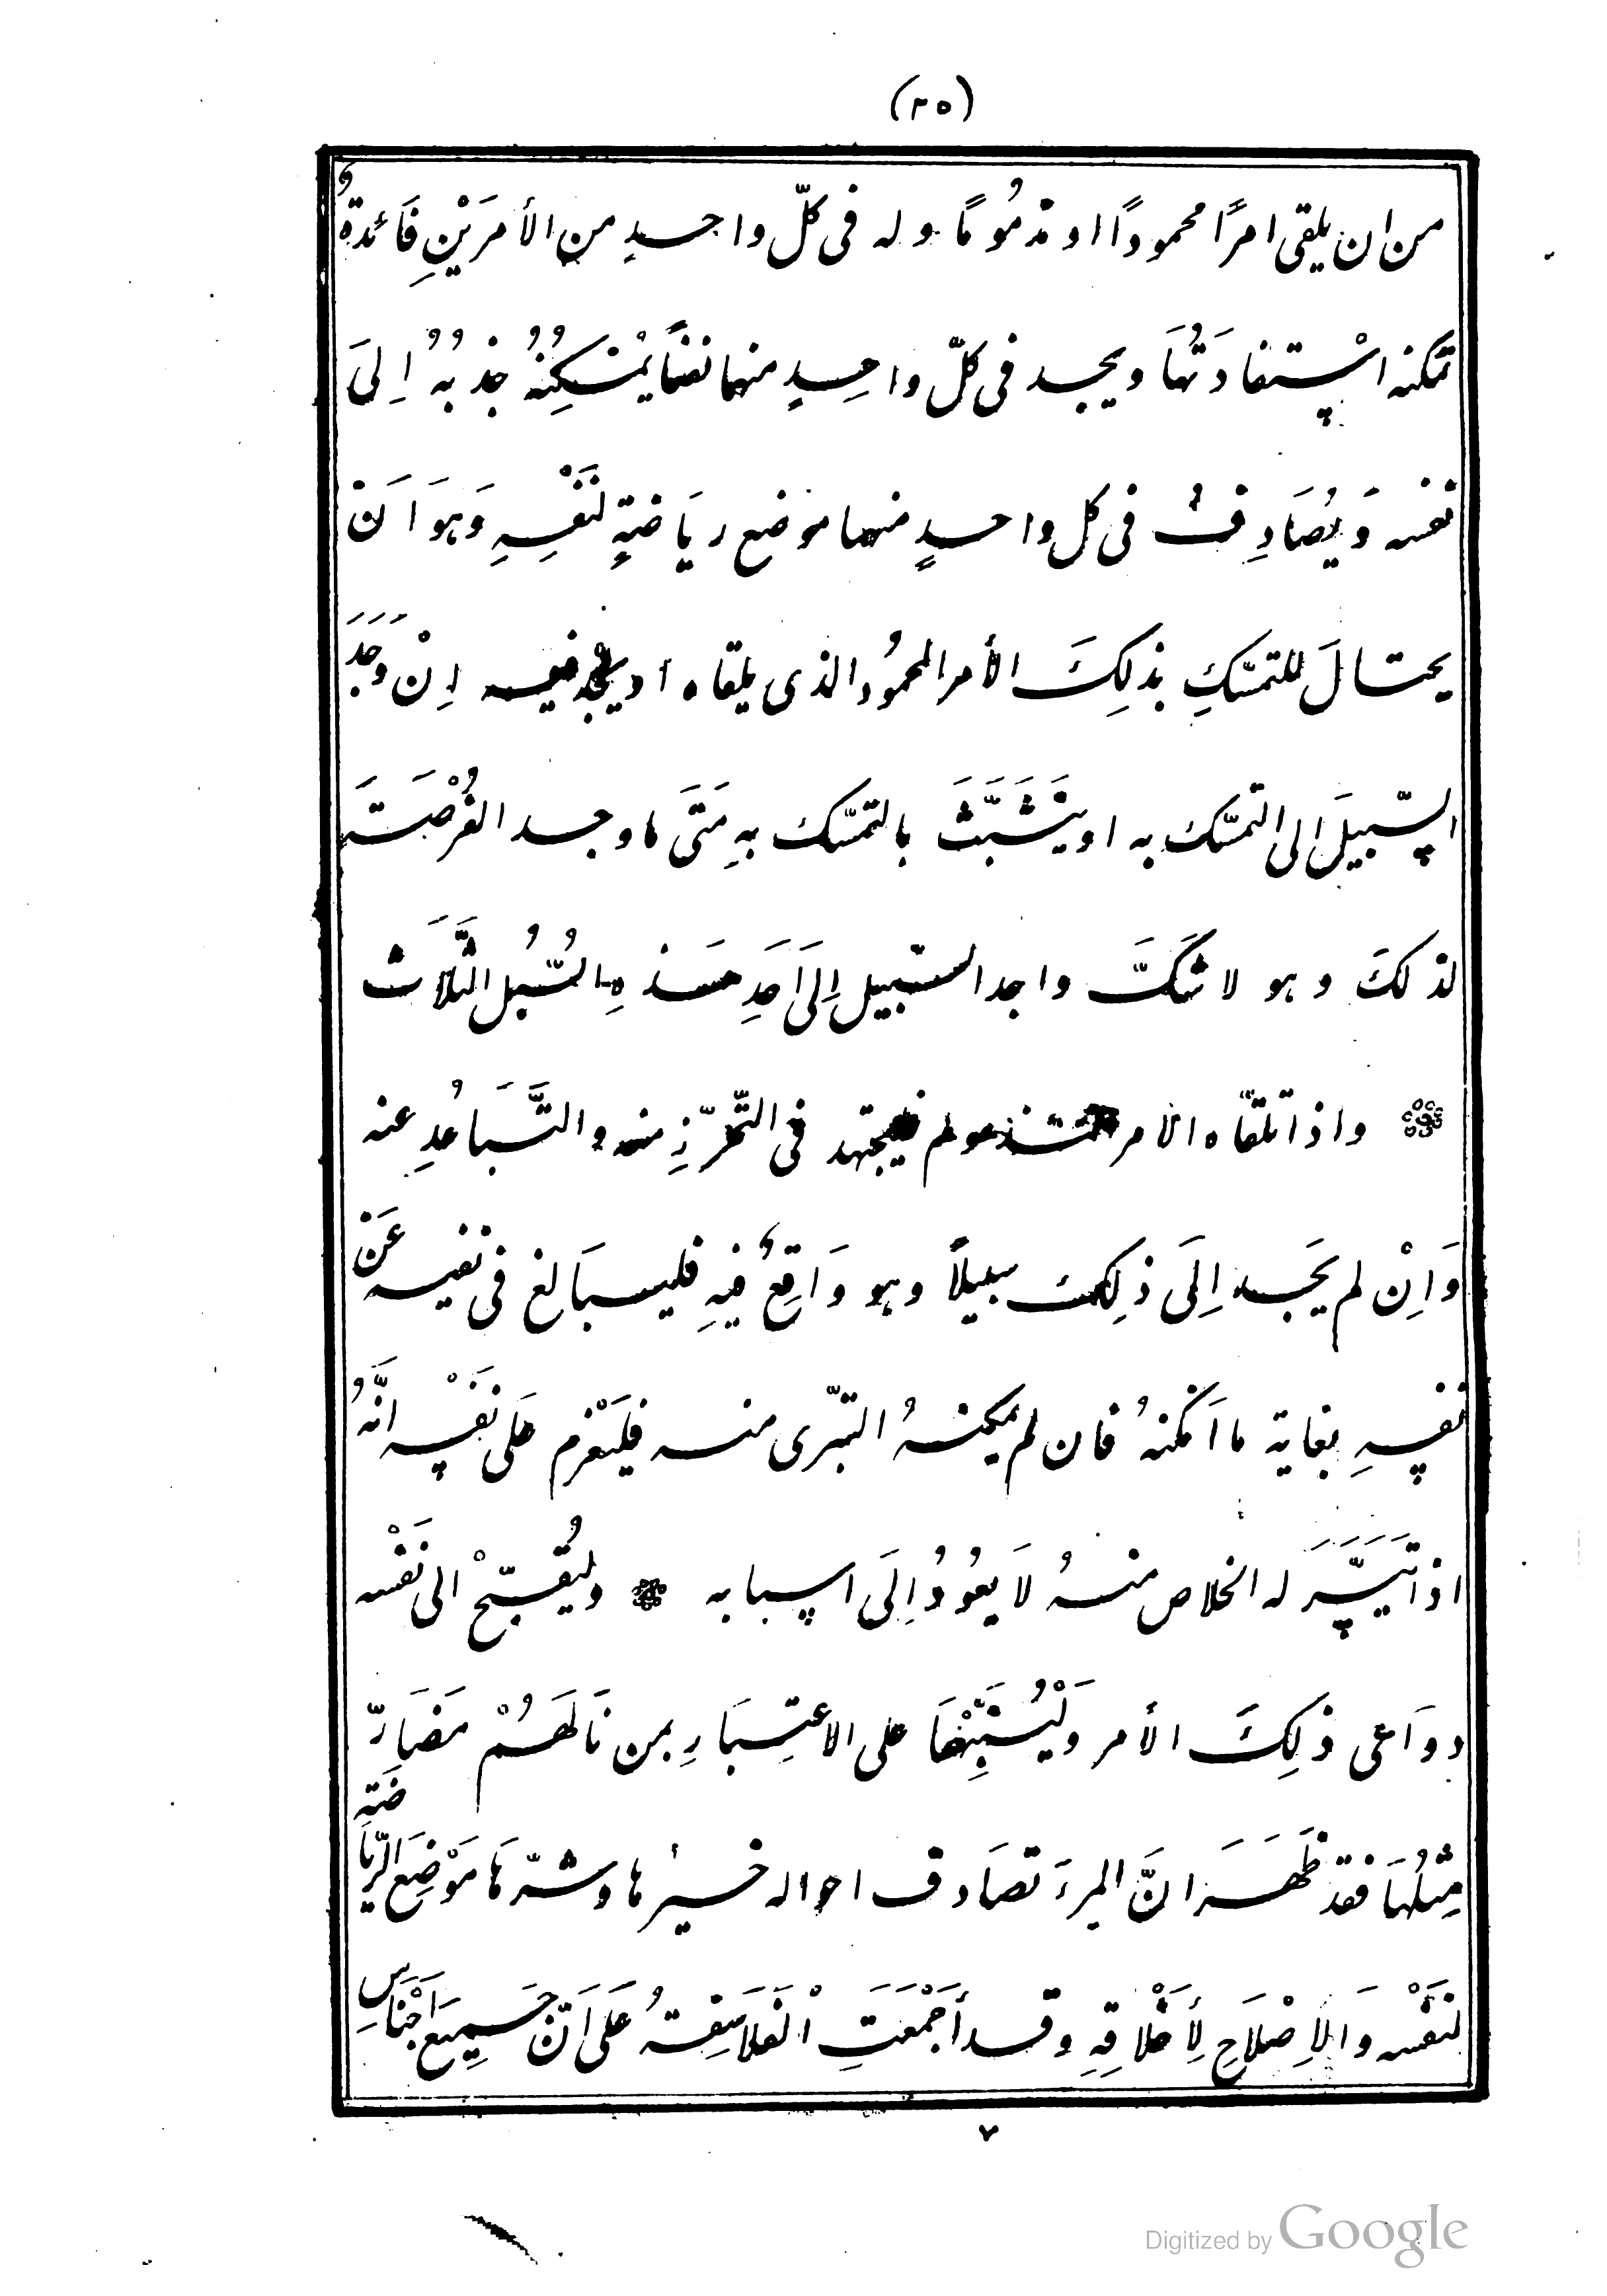 (٢٥)
من ان يلقى امرًا محمودًا او مذمُومًا وله فى كلّ واحدٍ من الأمرَيْنِ فَائدةٌ
تمكنه اسْتفادَتُهَا ويجد فى كلّ واحِدٍ منهما نفعًا يُمْكِنُهُ جذبُهُ اِلىَ
نفسه وَيُصَادِفُ فى كل واحدٍ منهما موضع ريَاضةٍ لنَفْسِهِ وَهوَ اَنْ
يحتالَ للتمسّكِ بذلِكَ الأمر المحمُود الذى يلقاه او يجد فيه اِنْ وَجَدَ
السّبيلَ الى التمسّك به او يتَشَبَّثَ بالتمسّك بهِ مَتَى ما وجد الفُرْصَةَ
لذلكَ وهو لا شَكَّ واجد السّبيل اِلَى اَحَدِ هَذهِ السُّبُل الثَّلاَث
واذا تلقّاه الأمر المذموم فليجتهد فى التّحرّزِ منه والتَّبَاعُدِ عنه
وَاِنْ لم يَجد اِلَى ذلِكَ سبيلًا وهو وَاقِعٌ فيهِ فليبَالغ فى نفيه عَنْ
نفسِهِ بغاية ما اَمْكنهُ فان لم يمكنهُ التبرّى منه فليَعْزم على نفَسْه انَّهُ
اذا تيَسَّرَ له الخلاص منهُ لاَ يعُودُ اِلَى اسبابه وليُقبّحْ الى نَفْسه
دوَاعى ذلِكَ الأمر وَلْيُنَبِّهْهَا على الاعتِبَارِ بمن نَالَهُمْ مَضَارّ
مِثلُهَا فقد ظَهَرَ انَّ المرءَ تصَادف احواله خيرُها وشرّهَا مَوْضِعَ الرّيَاضَةِ
لنَفْسه وَالاِصْلاَحِ لِأَخْلاقِهِ وقد أَجْمَعَتِ اْلفَلاَسِفةُ عَلَى اَنّ جَميِعَ اَجْنَاسِ
٧
Digitized by Google